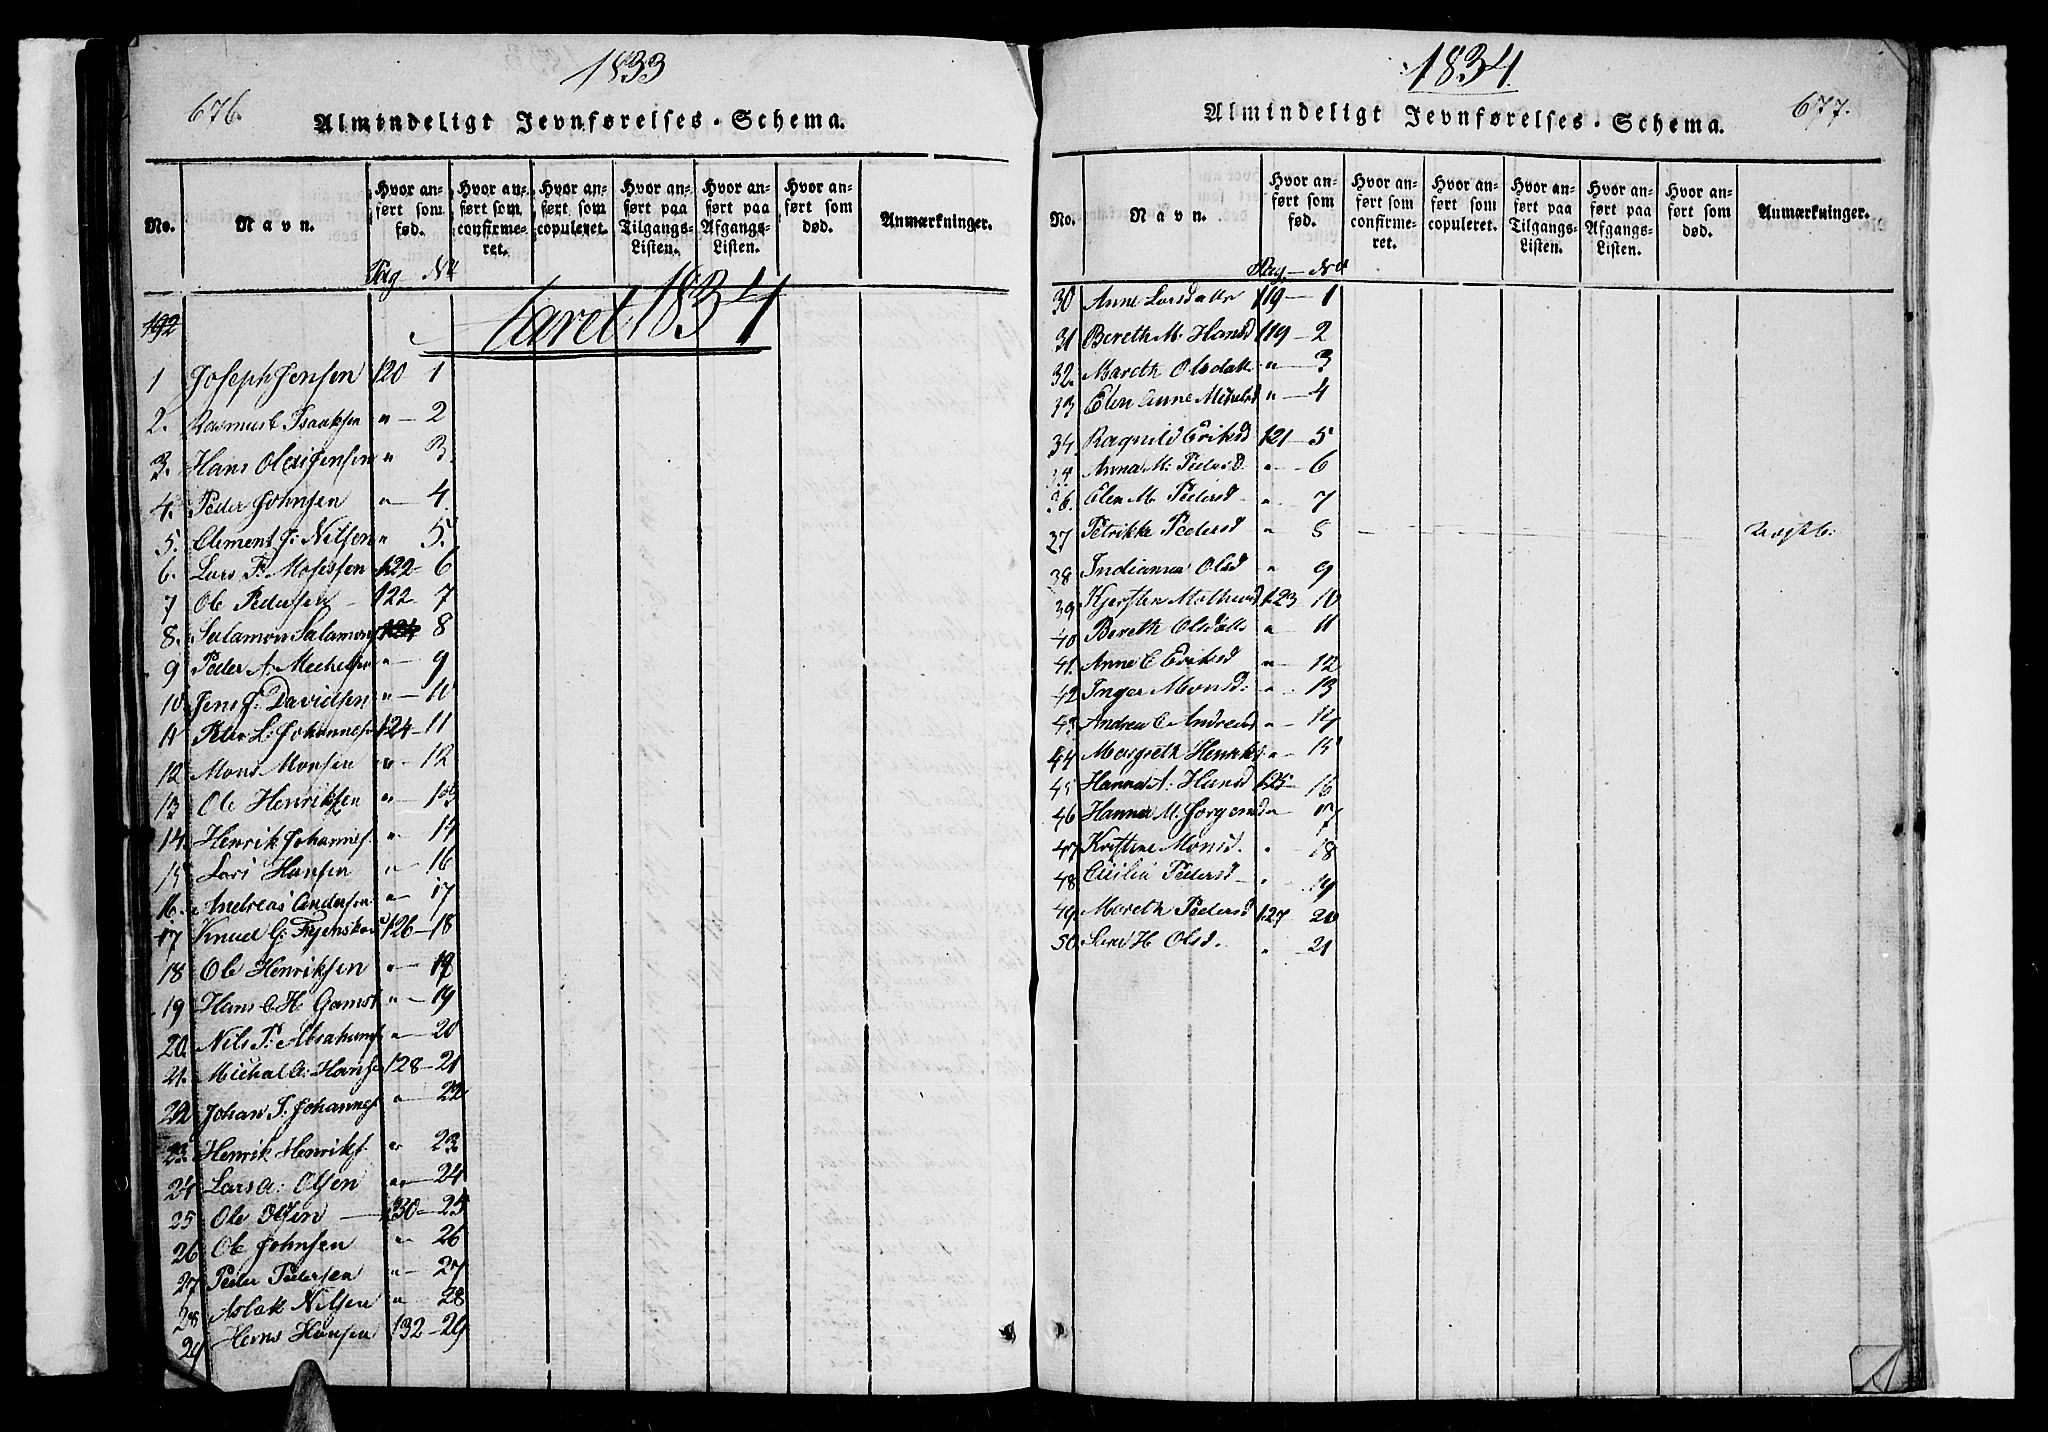 1833
676.
Almindeligt Jevnførelses-Schema.
No.
Navn.
Hvor an-
ført som
fød.
Hvor an-
ført som
confirme-
ret.
Hvor an-
ført som
copuleret.
Hvor an-
ført paa
Tilgangs-
Listen.
Hvor an-
ført paa
Afgangs-
Listen.
Hvor an-
ført som
død.
Anmærkninger.
Pag No
192
Aaret 1834
1 Joseph Jensen 120 1
2. Rasmus Isaaksen " — 2
3. Hans Jensen " 3.
4. Peder Johnsen " — 4
5. Clement J: Nilsen " 5.
6. Lars F: Mosessen 122 — 6
7 Ole Pedersen — 122 7
8. Salamon Salamons 8
9 Peder A. Michelsen " — 9
10. Jens J: Davidsen " — 10
11 Peder L: Johannes 124 — 11
12 Mons Monsen " — 12
13 Ole Henriksen " — 13
14. Henrik Johannes. "
15 Lars Hansen " — 16
16. Andreas Andersen " — 17
17 Knud G: 126 — 18
18 Ole Henriksen " —
19 Hans C H. Gamst " — 19
20. Nils P: Abrahams " — 20
21. Michal Hanse 128 — 21
22 Johan P. Johannes " — 22
23. Henrik Henriks. " 23
24 Lars A: Olsen " — 24
25 Ole Olsen — 130 — 25
26 Ole Johnsen " 26
27 Peder Pedersen " — 27
28 Aslak Nilsen " 28
29 Hans Hansen 132 — 29
1834.
677.
Almindeligt Jevnførelses-Schema.
No.
Navn.
Hvor an-
ført som
fød.
Hvor an-
ført som
confirme-
ret.
Hvor an-
ført som
copuleret.
Hvor an-
ført paa
Tilgangs-
Listen.
Hvor an-
ført paa
Afgangs-
Listen.
Hvor an-
ført som
død.
Anmærkninger.
Pag — No
30 Anne Larsdatter 119 — 1
31 Bereth M: Hansd 119 — 2
32. Mareth Olsdatt " — 3
33 Elen Anne Michelsd " — 4
34. Ragnild Eriksd 121 — 5
35. Anna M: Pedersd " — 6
36. Elen M. Pedersd " — 7
37 Petrikke Pedersd " 8
38 Indianna Olsd " 9
39 Kjersten Mathisd 123 10
40 Bereth Olsdatt " 11
41. Anne C Eriksd " — 12
42 Inger Monsd: " — 13
43. Andrea C Andreasd " — 14
44 Margreth Henriks: " — 15
45 Hanna A: Hansd 125 — 16
46 Hanna M. Jørgensd " — 17
47 Kristine Monsd. " 18
48 Cicilia Pedersd — " 19
49. Mareth Pedersd 127 — 20
50. H Olsd. " — 21